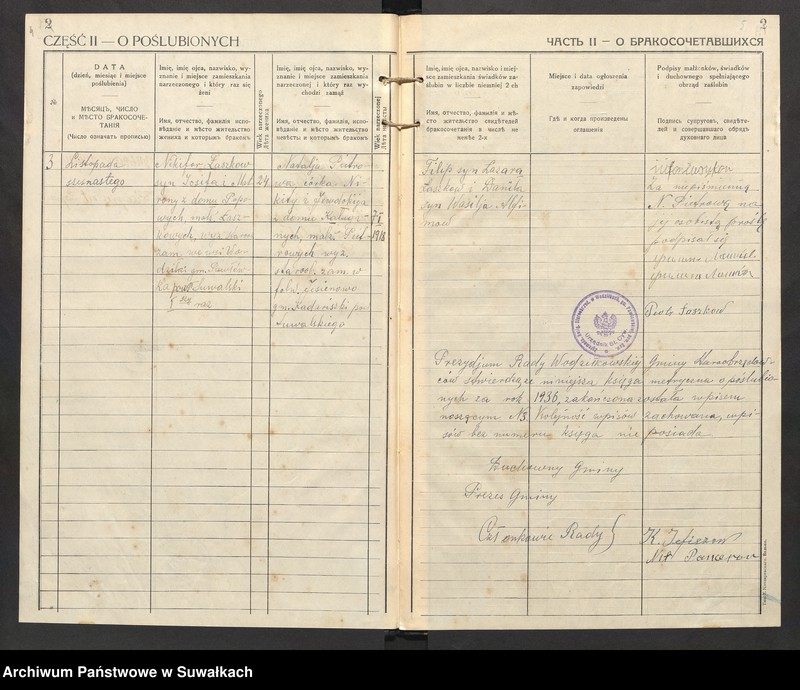 2
CZĘŚĆ II — O POŚLUBIONYCH
DATA
(dzień, miesiąc i miejsce
poślubienia)
МѢСЯЦЪ, ЧИСЛО
и МѢСТО БРАКОСОЧЕ-
ТАНІЯ
(Число означать прописью)
Imię, imię ojca, nazwisko, wy-
znanie i miejsce zamieszkania
narzeczonego i który raz się
żeni
Имя, отчество, фамилія, испо-
вѣданіе и мѣсто жительство
жениха и которымъ бракомъ
Wiek narzeczonego
Лѣта жениха
Imię, imię ojca, nazwisko, wy-
znanie i miejsce zamieszkania
narzeczonej i który raz wy-
chodzi zamąż
Имя, отчество, фамилія, испо-
вѣданіе и мѣсто жительство
невѣсты и которымъ бракомъ
Wiek narzeczonej
Лѣта невѣсты
3
Listopada
ósmastego
Nikifor Łaszkow
syn Josifa i Mat
rony z domu Popo-
wych, małż. Łasz-
kowych, wyz. staro
zam. we wsi Wo-
dziłki gm. Pawłow-
ka pow. Suwalski
I raz
24
Natalja Pietro
wa, córka Ni-
kity i Jewdokiji
z domu
nych, małż. Piet-
rowych wyz.
starob. zam. w
folw. Lesienowo
gm. Kadaryszki pow
Suwalskiego
7/I
1918
2
ЧАСТЬ II — О БРАКОСОЧЕТАВШИХСЯ
Imię, imię ojca, nazwisko i miej-
sce zamieszkania świadków za-
ślubin w liczbie niemniej 2-ch
Имя, отчество, фамилія и мѣ-
сто жительство свидѣтелей
бракосочетанія въ числѣ не
менѣе 2-х
Miejsce i data ogłoszenia
zapowiedzi
Гдѣ и когда произведены
оглашенія
Podpisy małżonków, świadków
i duchownego spełniającego
obrząd zaślubin
Подпись супруговъ, свидѣте-
лей и совершавшего обрядъ
духовнаго лица
Filip syn Łazara
Łaszkow i Daniła
syn Wasilja
Za niepiśmienną
N. Pietrową na
jej osobistą prośbę
podpisał się
Piotr Łaszkow
Prezydjum Rady Wodziłkowskiej Gminy Staroobrzędow-
ców stwierdza, że niniejsza księga metryczna o poślubio-
nych za rok 1936, zakończona została wpisem
noszącym №3. Kolejność wpisów zachowana, wpi-
sów bez numeru księga nie posiada
Duchowny Gminy
Prezes Gminy
Członkowie Rady
Archiwum Państwowe w Suwałkach